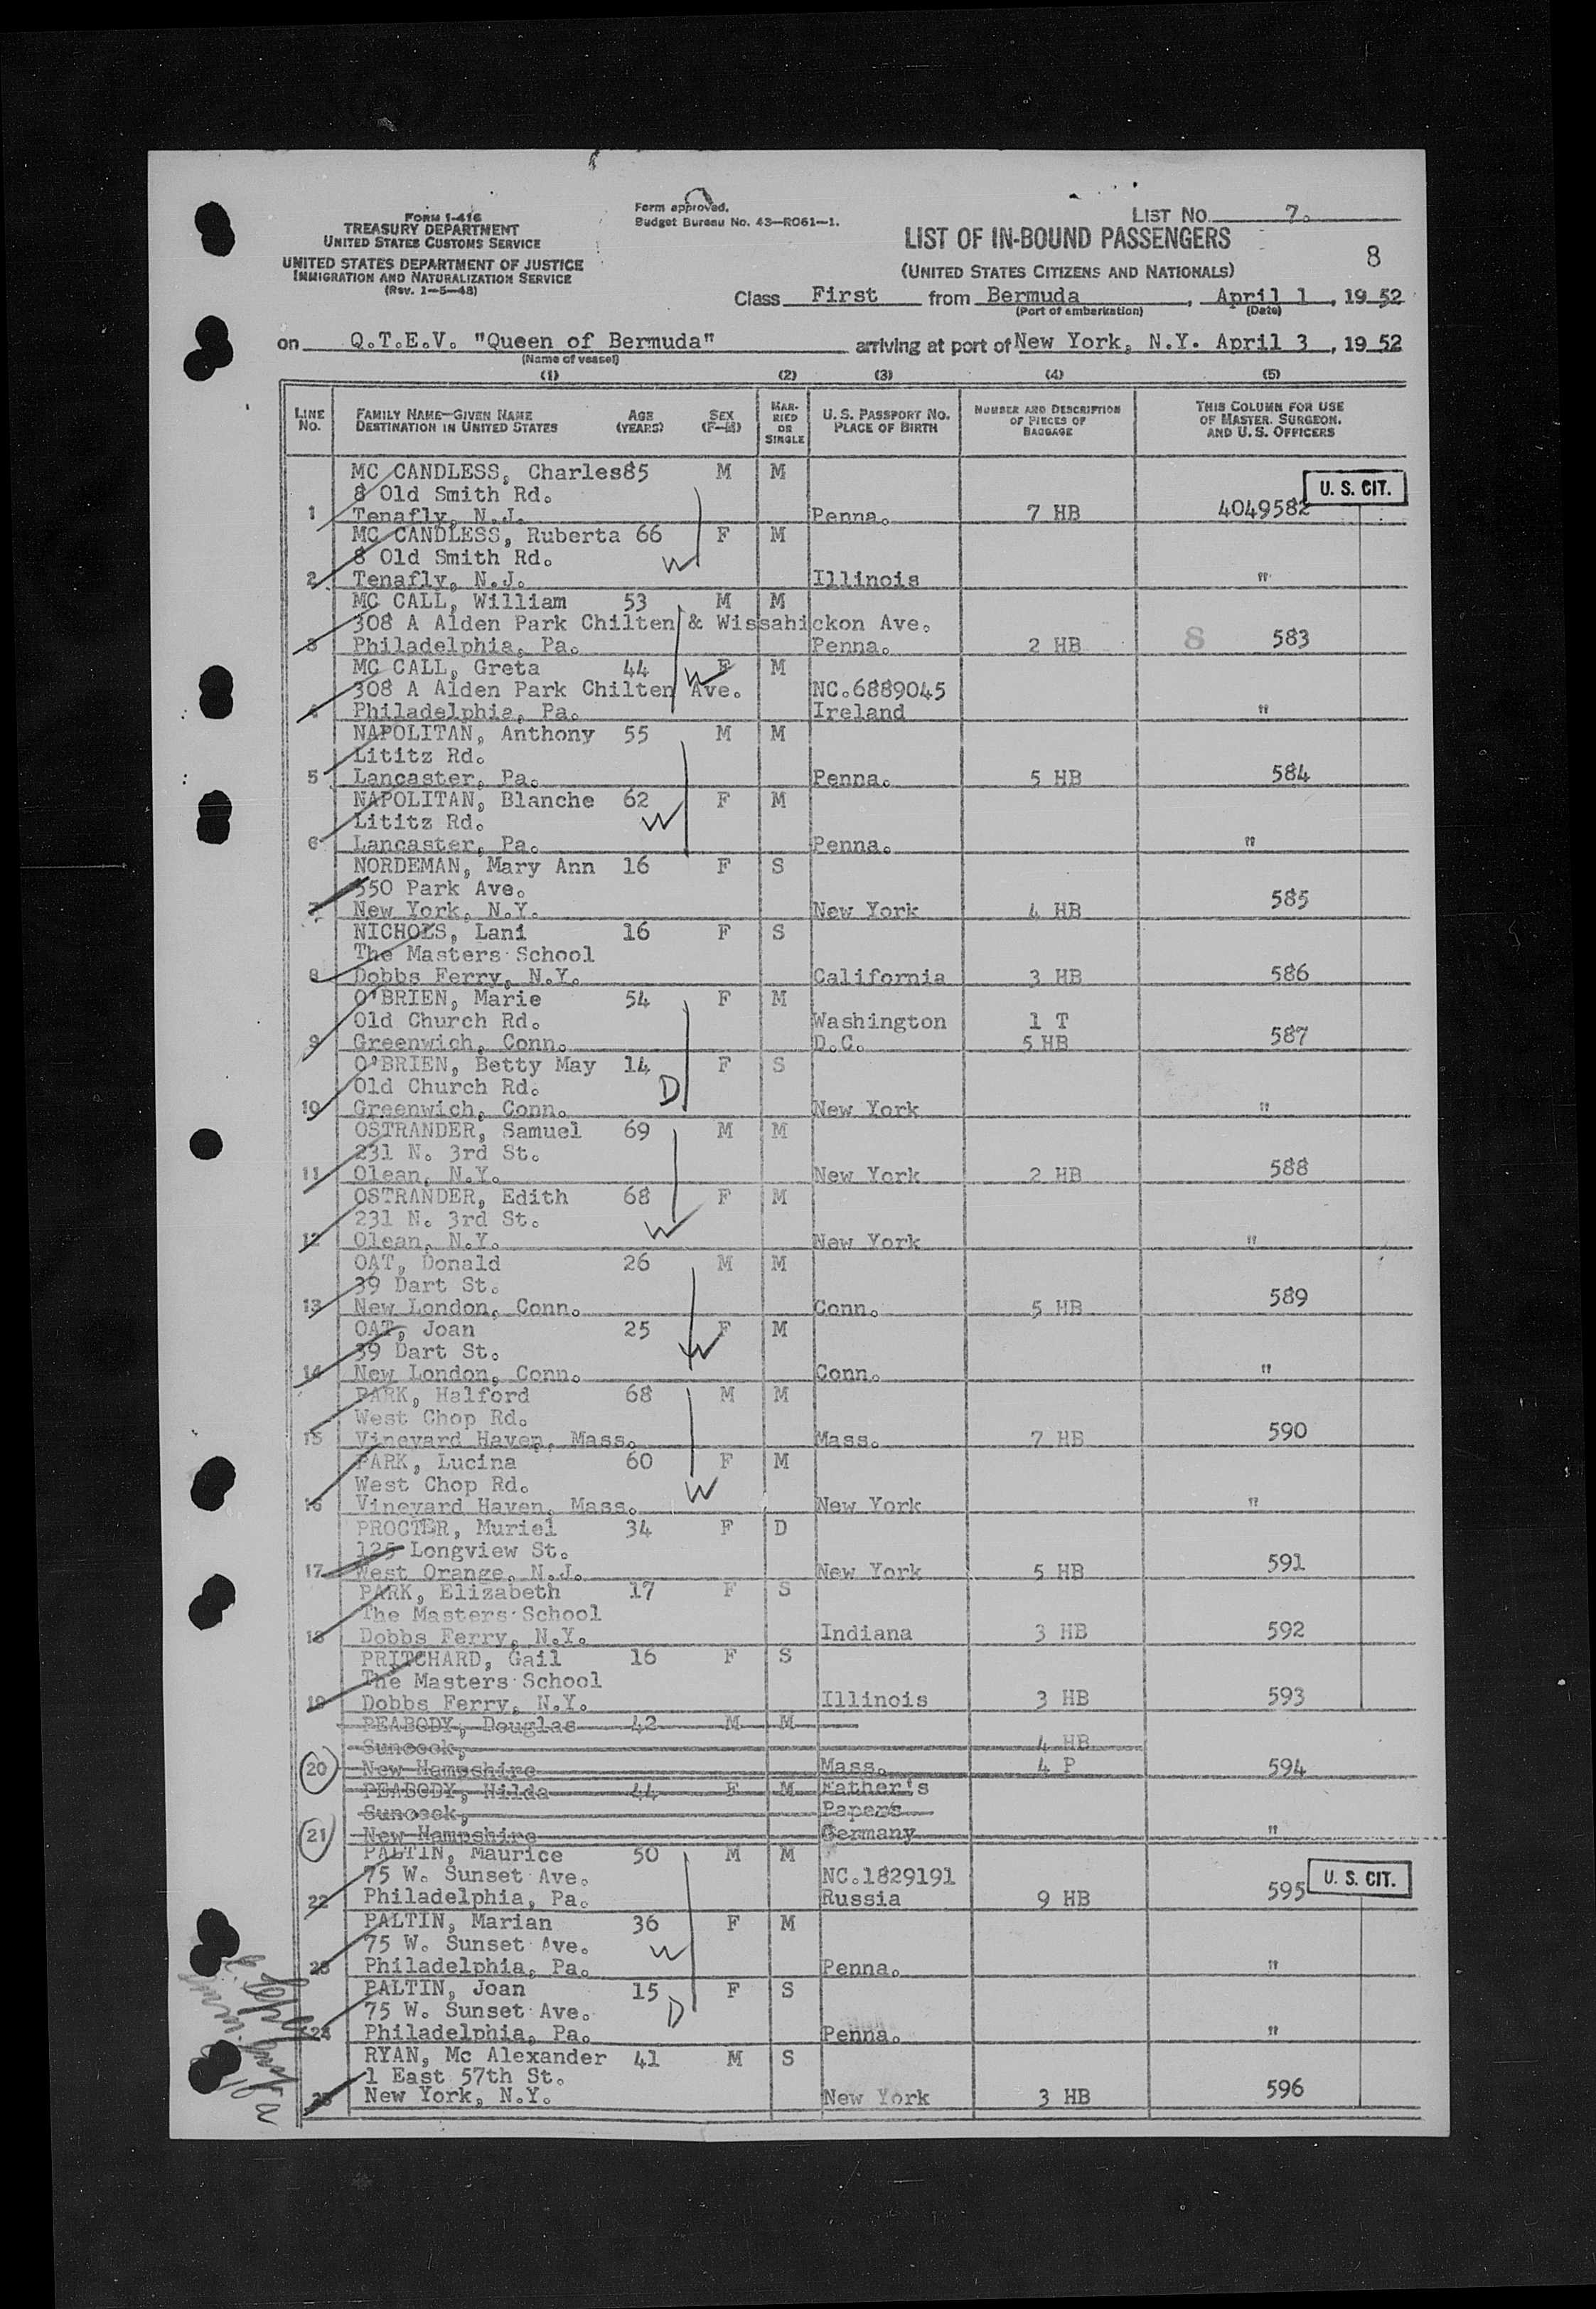 FORM I-416
TREASURY DEPARTMENT
UNITED STATES CUSTOMS SERVICE
UNITED STATES DEPARTMENT OF JUSTICE
IMMIGRATION AND NATURALIZATION SERVICE
(Rev. 1-5-48)
Form approved.
Budget Bureau No. 43-R061-1.
LIST NO. 7.
LIST OF IN-BOUND PASSENGERS
8
(UNITED STATES CITIZENS AND NATIONALS)
Class First from Bermuda, April 1, 1952
(Port of embarkation) (Date)
on Q.T.E.V. "Queen of Bermuda" arriving at port of New York, N.Y. April 3, 1952
(Name of vessel)
(1) (2) (3) (4) (5)
LINE NO. FAMILY NAME-GIVEN NAME DESTINATION IN UNITED STATES AGE (YEARS) SEX (F-M) MARRIED OR SINGLE U. S. PASSPORT NO. PLACE OF BIRTH NUMBER AND DESCRIPTION OF PIECES OF BAGGAGE THIS COLUMN FOR USE OF MASTER, SURGEON, AND U. S. OFFICERS
MC CANDLESS, Charles 85 M M
8 Old Smith Rd. U. S. CIT.
1 Tenafly, N.J. Penna. 7 HB 4049582
MC CANDLESS, Ruberta 66 F M
8 Old Smith Rd. W
2 Tenafly, N.J. Illinois "
MC CALL, William 53 M M
308 A Alden Park Chilten & Wissahickon Ave.
3 Philadelphia, Pa. Penna. 2 HB 8 583
MC CALL, Greta 44 W F M
308 A Alden Park Chilten Ave. NC.6889045
4 Philadelphia, Pa. Ireland "
NAPOLITAN, Anthony 55 M M
Lititz Rd.
5 Lancaster, Pa. Penna. 5 HB 584
NAPOLITAN, Blanche 62 F M
Lititz Rd. W
6 Lancaster, Pa. Penna. "
NORDEMAN, Mary Ann 16 F S
550 Park Ave.
7 New York, N.Y. New York 4 HB 585
NICHOLS, Lani 16 F S
The Masters School
8 Dobbs Ferry, N.Y. California 3 HB 586
O'BRIEN, Marie 54 F M
Old Church Rd. Washington 1 T
9 Greenwich, Conn. D.C. 5 HB 587
O'BRIEN, Betty May 14 F S
Old Church Rd. D
10 Greenwich, Conn. New York "
OSTRANDER, Samuel 69 M M
231 N. 3rd St.
11 Olean, N.Y. New York 2 HB 588
OSTRANDER, Edith 68 F M
231 N. 3rd St. W
12 Olean, N.Y. New York "
OAT, Donald 26 M M
39 Dart St.
13 New London, Conn. Conn. 5 HB 589
OAT, Joan 25 F M
39 Dart St. W
14 New London, Conn. Conn. "
PARK, Halford 68 M M
West Chop Rd.
15 Vineyard Haven, Mass. Mass. 7 HB 590
PARK, Lucina 60 F M
West Chop Rd. W
16 Vineyard Haven, Mass. New York "
PROCTER, Muriel 34 F D
125 Longview St.
17 West Orange, N.J. New York 5 HB 591
PARK, Elizabeth 17 F S
The Masters School
18 Dobbs Ferry, N.Y. Indiana 3 HB 592
PRITCHARD, Gail 16 F S
The Masters School
19 Dobbs Ferry, N.Y. Illinois 3 HB 593
PEABODY, Douglas 42 M M
Suncook, 4 HB
20 New Hampshire Mass. 4 P 594
PEABODY, Hilda 44 F M Father's
Suncook, Papers
21 New Hampshire Germany "
PALTIN, Maurice 50 M M
75 W. Sunset Ave. NC.1829191 U. S. CIT.
22 Philadelphia, Pa. Russia 9 HB 595
PALTIN, Marian 36 F M
75 W. Sunset Ave. W
23 Philadelphia, Pa. Penna. "
PALTIN, Joan 15 F S
75 W. Sunset Ave. D
24 Philadelphia, Pa. Penna. "
RYAN, Mc Alexander 41 M S
1 East 57th St.
25 New York, N.Y. New York 3 HB 596